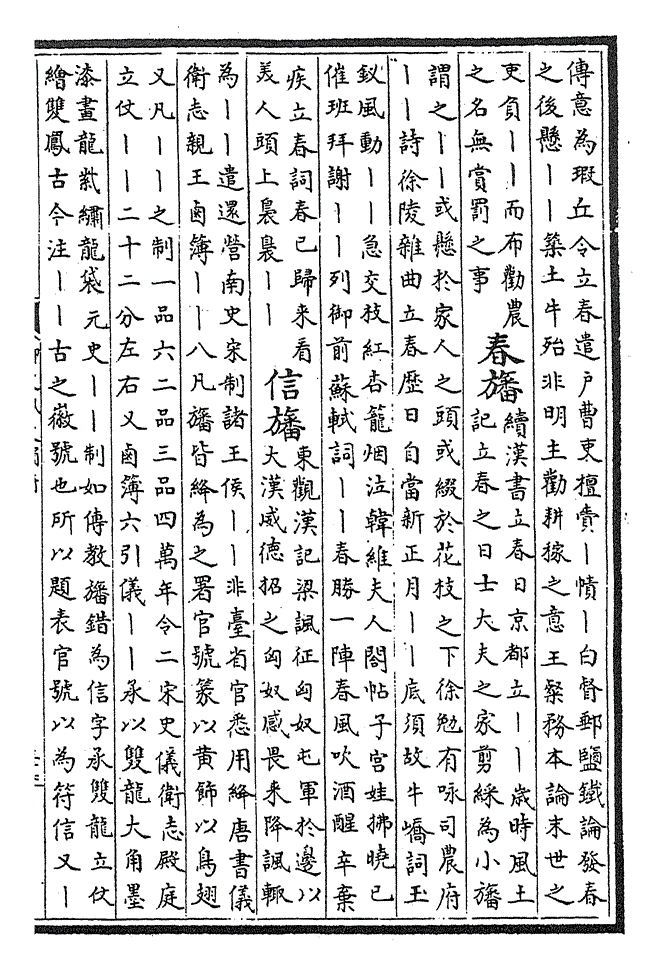 傳意為瑕丘令立春遣戶曹吏檀賁丨幘丨白督郵鹽鐵論發春
之後懸丨丨築土牛殆非明主勸耕稼之意王粲務本論末世之
吏負丨丨而布勸農
之名無賞罰之事
春旛
續漢書立春日京都立丨丨歲時風土
記立春之日士大夫之家剪綵為小旛
謂之丨丨或懸於家人之頭或綴於花枝之下徐勉有咏司農府
丨丨詩徐陵雜曲立春歷日自當新正月丨丨底須故牛嶠詞玉
釵風動丨丨急交枝紅杏籠烟泣韓維夫人閤帖子宮娃拂曉已
催班拜謝丨丨列御前蘇軾詞丨丨春勝一陣春風吹酒醒辛棄
疾立春詞春已歸来看
美人頭上裊裊丨丨
信旛
東觀漢記梁諷征匈奴屯軍於邊以
大漢威德招之匈奴感畏来降諷輒
為丨丨遣還營南史宋制諸王侯丨丨非臺省官悉用絳唐書儀
衛志親王鹵簿丨丨八凡旛皆絳為之署官號篆以黃飾以鳥翅
又凡丨丨之制一品六二品三品四萬年令二宋史儀衛志殿庭
立仗丨丨二十二分左右又鹵簿六引儀丨丨承以雙龍大角墨
漆畫龍紫繡龍袋元史丨丨制如傳教旛錯為信字承雙龍立仗
繪雙鳳古今注丨丨古之徽號也所以題表官號以為符信又丨